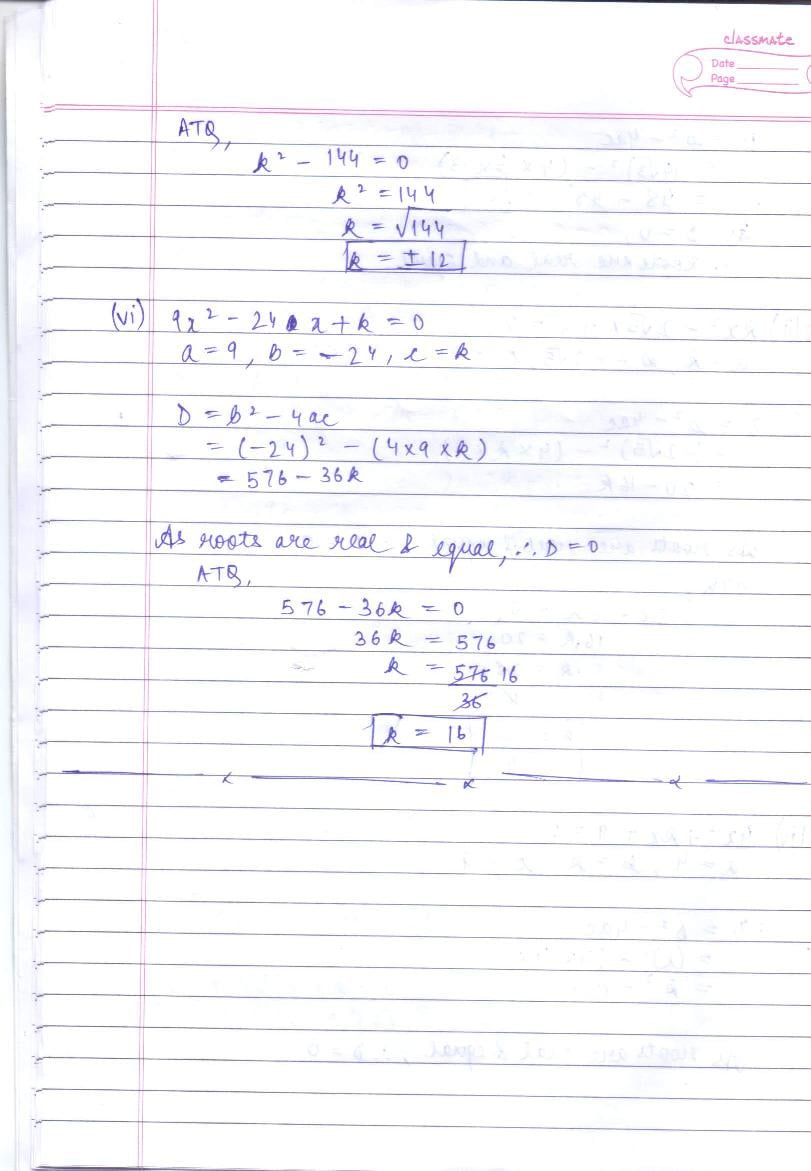 classmate
Date
Page
ATQ,
k² - 144 = 0
k² = 144
k = √144
k = ± 12
(vi) 9x² - 24 x + k = 0
a = 9, b = -24, c = k
D = b² - 4ac
= (-24)² - (4×9×k)
= 576 - 36k
As roots are real & equal, ∴ D = 0
ATQ,
576 - 36k = 0
36k = 576
k = 576 16
36
k = 16
x x x